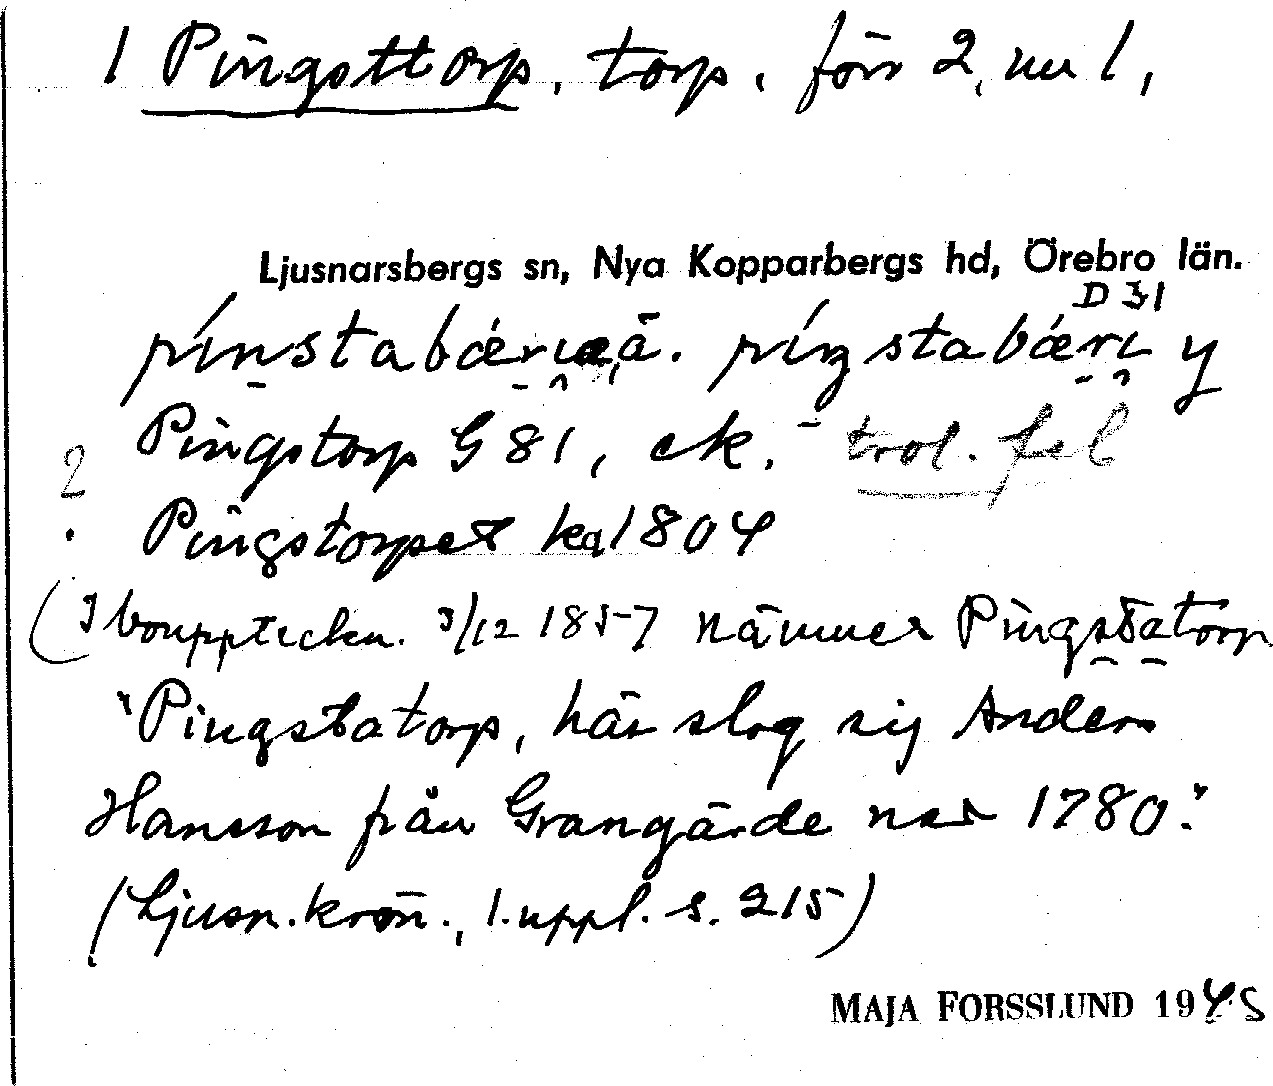 1 Pingsttorp, torp, förr 2, nu 1,
Ljusnarsbergs sn, Nya Kopparbergs hd, Örebro län.
D 31
Pingstorp G 81, ek. trol. fel
2
Pingstorpet ka 1804
(I bouppteckn. 3/12 1857 nämnes Pingstatorp
"Pingstatorp, här slog sig Anders
Hansson från Grangärde ner 1780."
(Ljusn. krön., 1. uppl. s. 215)
MAJA FORSSLUND 1945